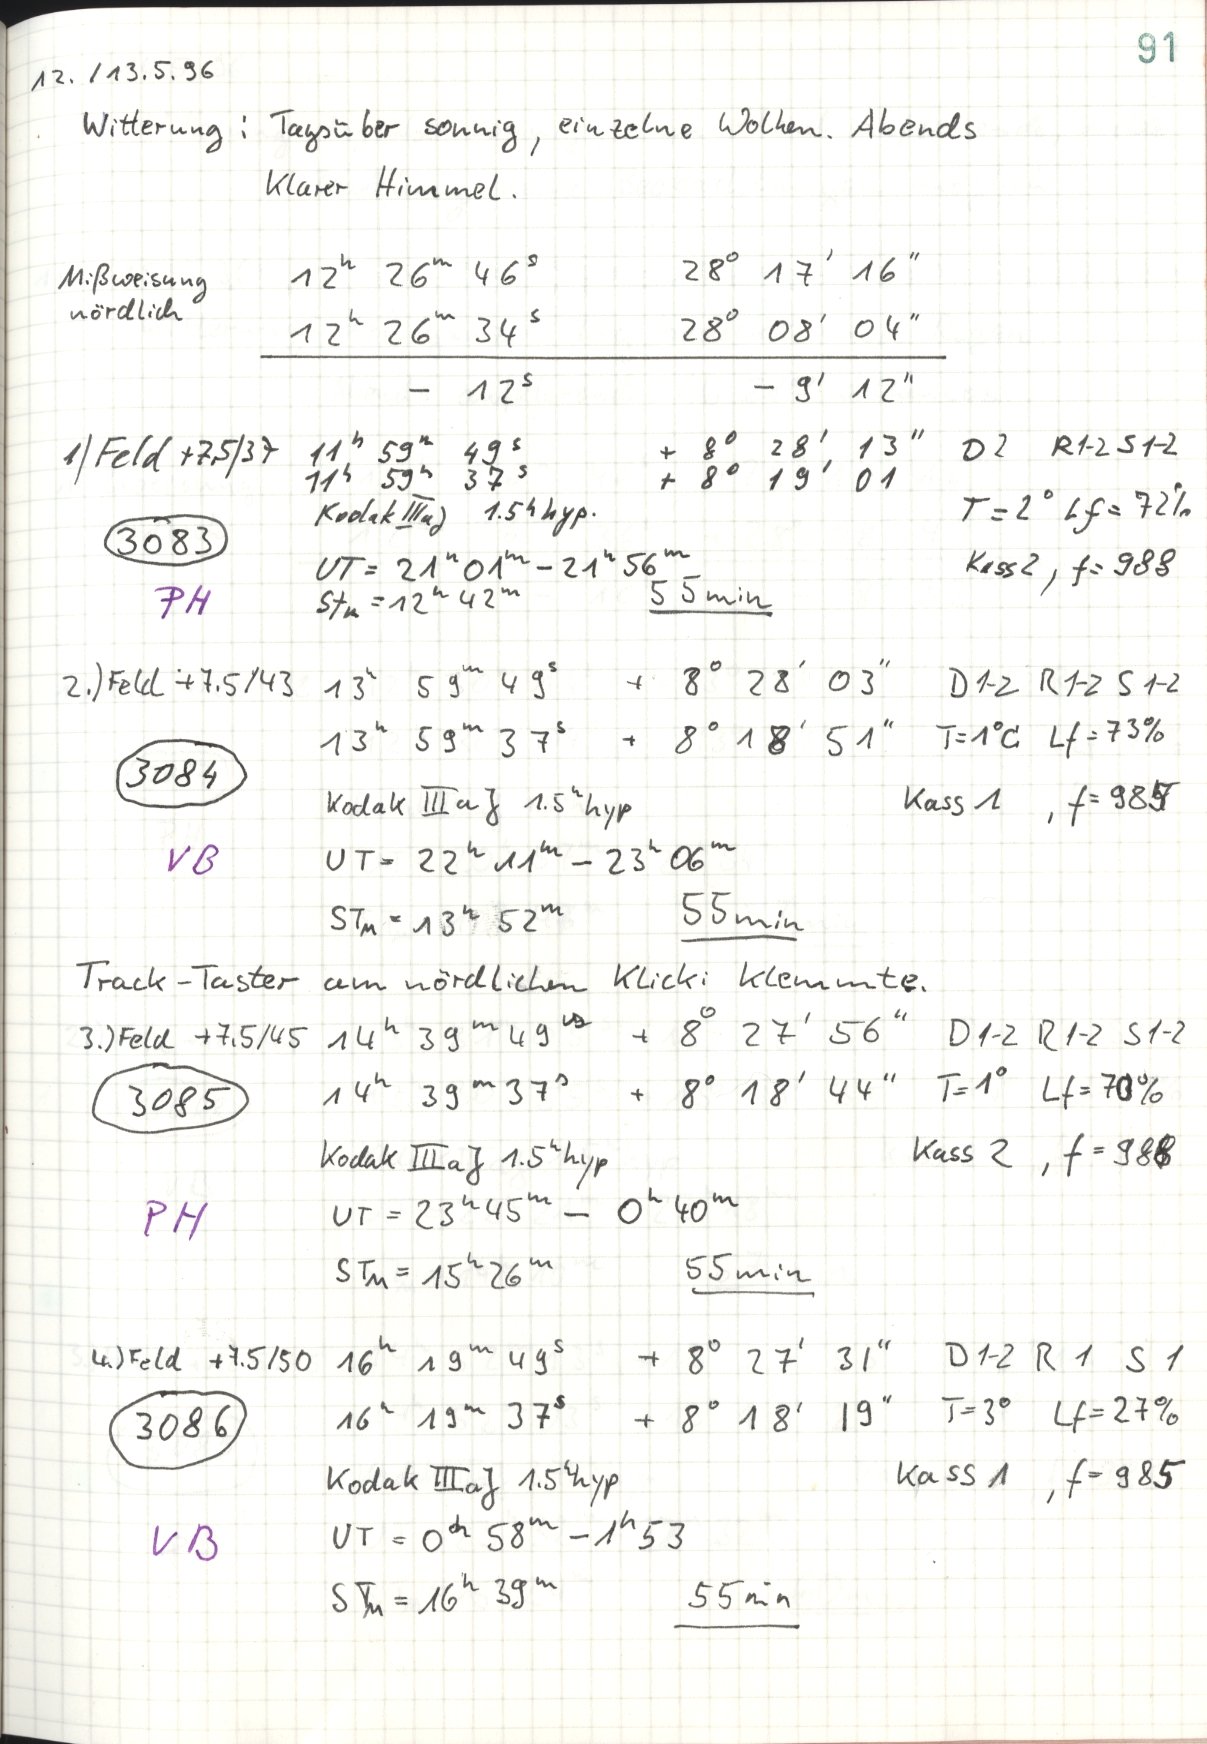 91
12./13.5.96
Witterung: Tagsüber sonnig, einzelne Wolken. Abends
Klarer Himmel.
Mißweisung nördlich
12h 26m 46s 28° 17' 16"
12h 26m 34s 28° 08' 04"
- 12s - 9' 12"
1) Feld +7.5/37 11h 59m 49s + 8° 28' 13" D2 R1-2 S1-2
11h 59m 37s + 8° 19' 01
Kodak IIIaJ 1.5h hyp. T=2° Lf=72%
3083 UT=21h01m-21h56m Kass 2, f=988
PH STM=12h42m 55min
2.) Feld +7.5/43 13h 59m 49s + 8° 28' 03" D1-2 R1-2 S1-2
13h 59m 37s + 8° 18' 51" T=1°C Lf=73%
3084 Kodak IIIaJ 1.5h hyp Kass 1, f=985
VB UT= 22h 11m - 23h 06m
STM= 13h 52m 55min
Track-Taster am nördlichen Klicki klemmte.
3.) Feld +7.5/45 14h 39m 49s + 8° 27' 56" D1-2 R1-2 S1-2
3085 14h 39m 37s + 8° 18' 44" T=1° Lf=70%
Kodak IIIaJ 1.5h hyp Kass 2, f=988
PH UT = 23h45m - 0h 40m
STM = 15h 26m 55min
4.) Feld +7.5/50 16h 19m 49s + 8° 27' 31" D1-2 R1 S1
3086 16h 19m 37s + 8° 18' 19" T=3° Lf=27%
Kodak IIIaJ 1.5h hyp Kass 1, f=985
VB UT = 0h 58m - 1h 53
STM = 16h 39m 55min